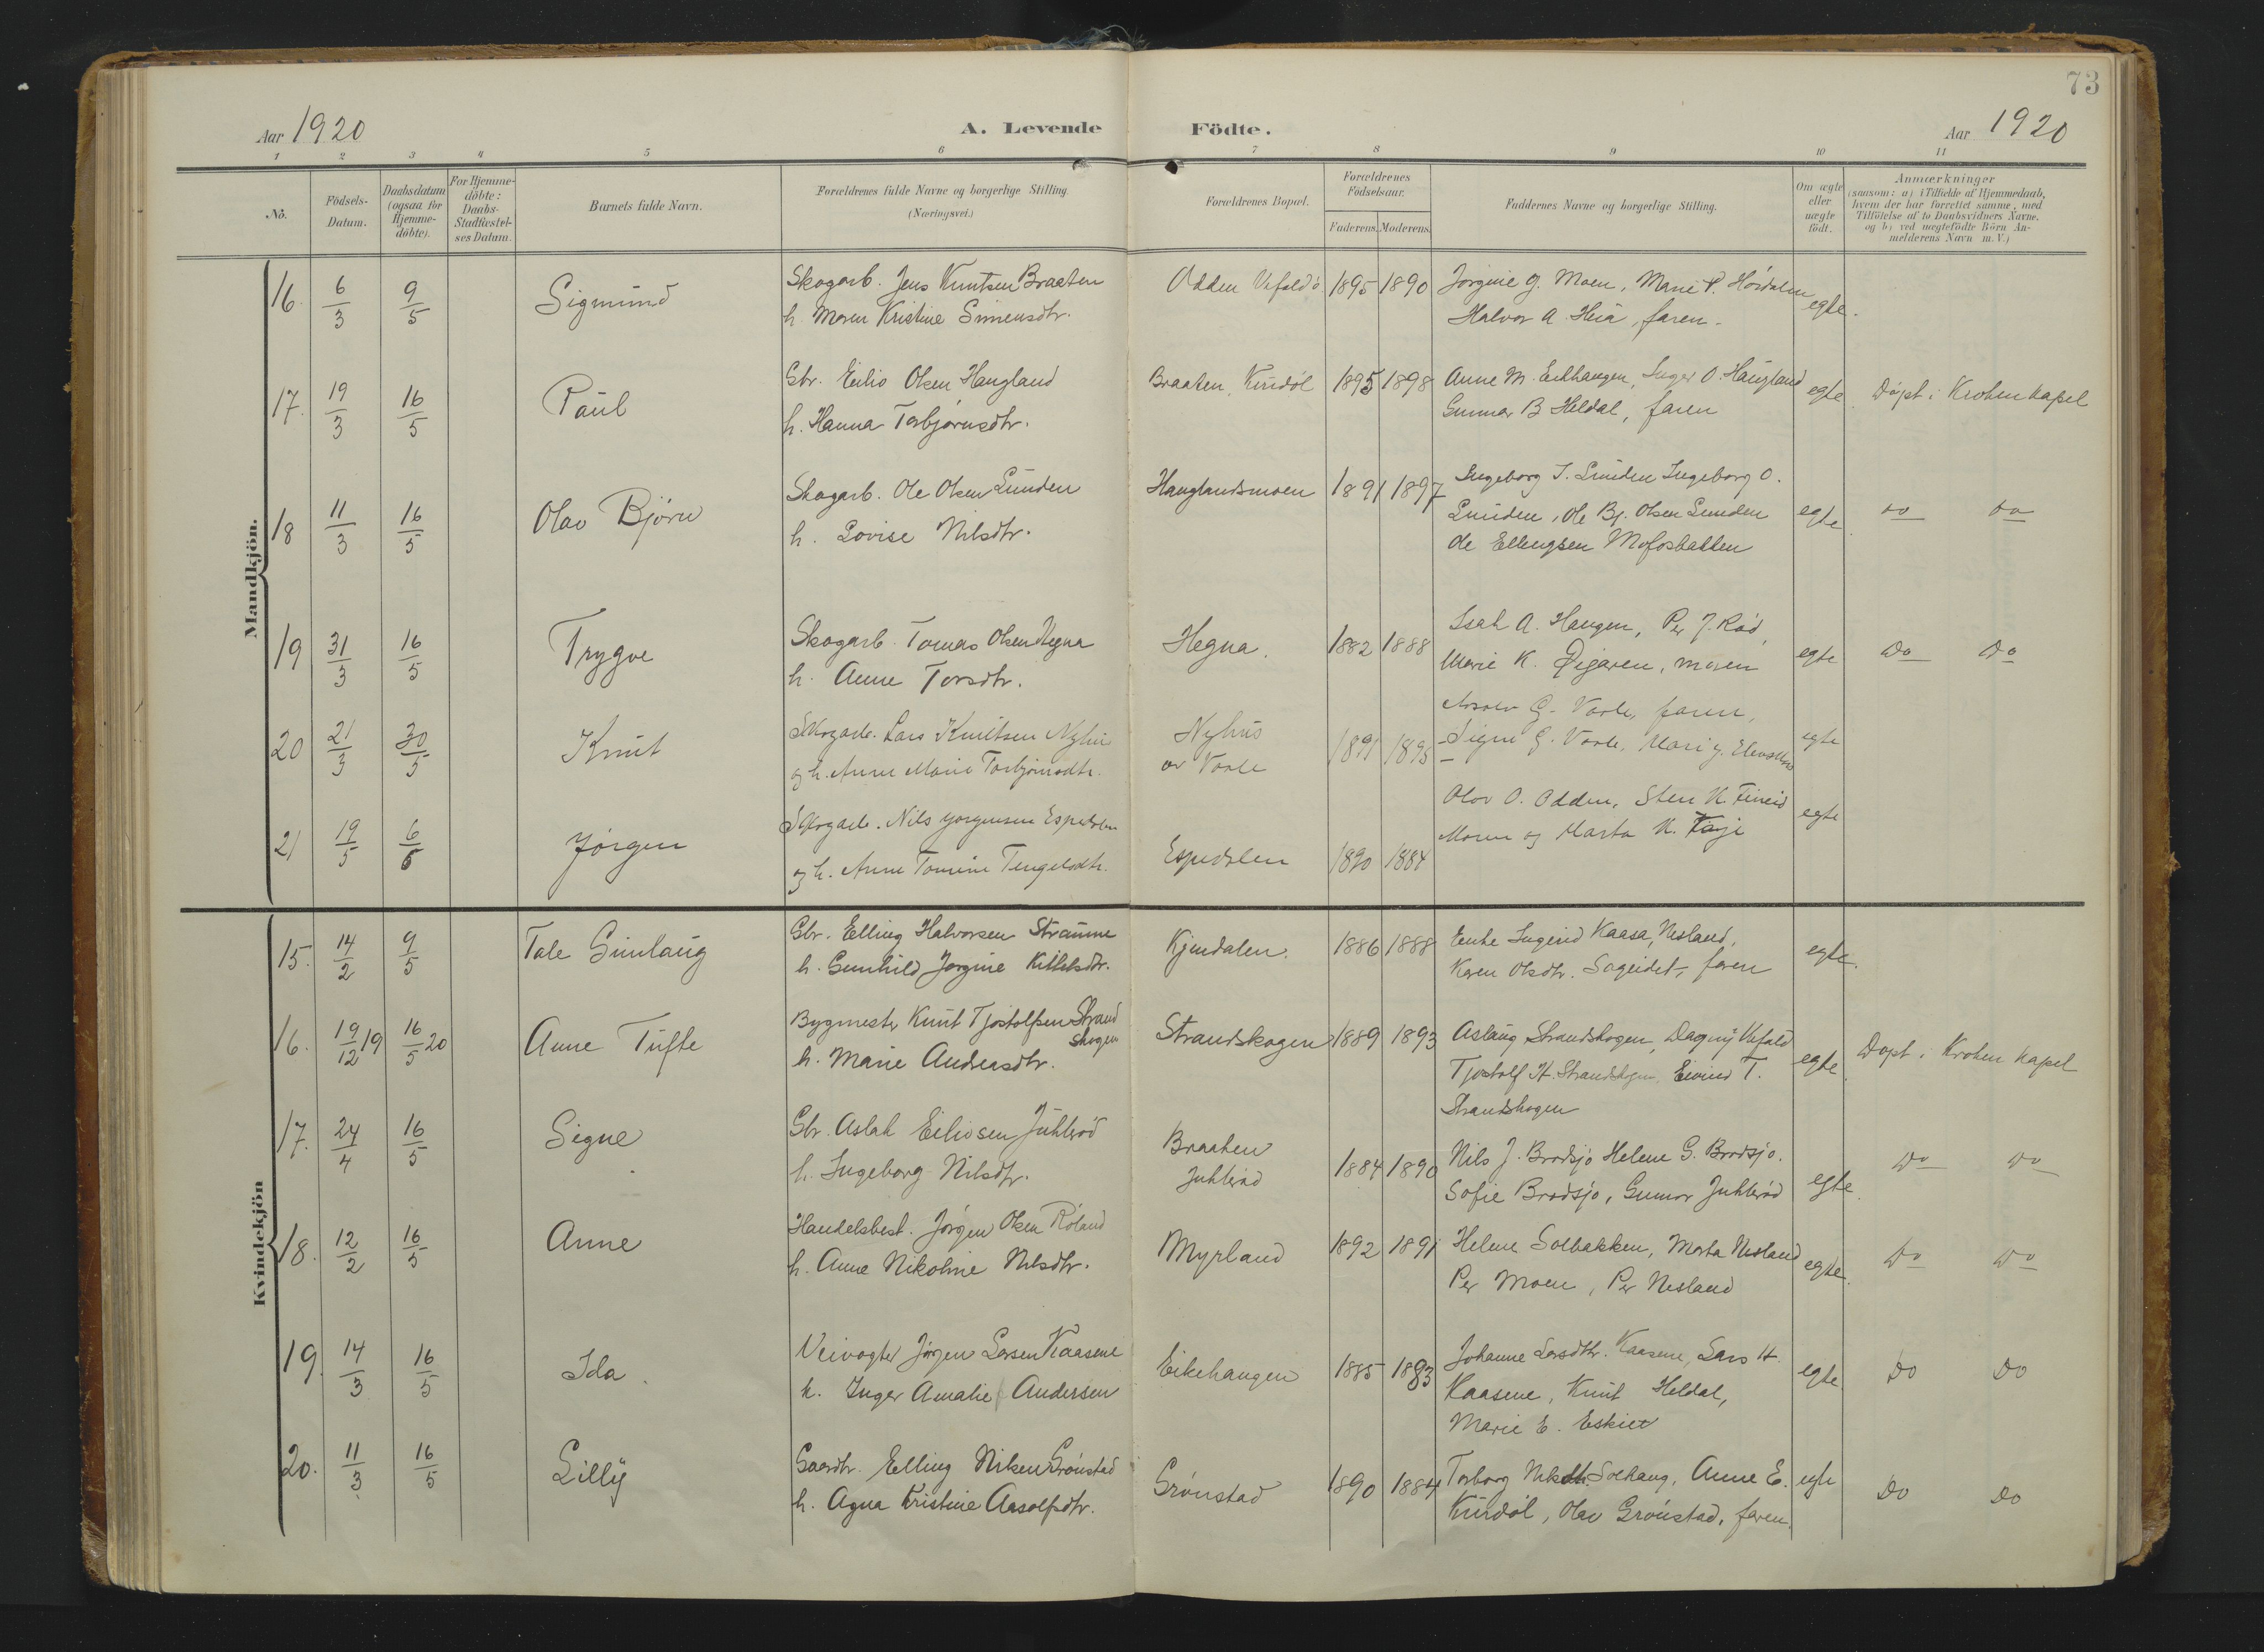 73
Aar 1920
A. Levende Födte.
Aar 1920
1 2 3 4 5 6 7 8 9 10 11
No.
Födsels-Datum.
Daabsdatum (ogsaa for Hjemme-döbte).
For Hjemme-döbte: Daabs-Stadfæstel-ses Datum.
Barnets fulde Navn.
Forældrenes fulde Navne og borgerlige Stilling. (Næringsvei.)
Forældrenes Bopæl.
Forældrenes Födselsaar.
Faderens. Moderens.
Faddernes Navne og borgerlige Stilling.
Om ægte eller uægte födt.
Anmærkninger
(saasom: a) i Tilfælde af Hjemmedaab,
hvem der har forrettet samme, med
Tilföielse af to Daabsvidners Navne.
og b) ved uægtefödte Börn An-
melderens Navn m. V.)
Mandkjön.
16. 6/3 9/5 Sigmund
Skogarb. Jens Knutsen Braaten
h. Maren Kristine Simensdtr.
Odden Vefald 1895 1890
Jorgine G. Moen, Marie P. Hördalen
Halvor A. Heia, faren.
egte.
17. 19/3 16/5 Paul
Gbr. Eilio Olsen Haugland
h. Hanna Torbjørnsdtr.
Braaten, Kurdöl 1895 1898
Anne M. Eikhaugen, Inger O. Haugland
Gunnar B Heldal, faren
egte. Döpt i Kroken kapel
18 11/3 16/5 Olav Björn
Skogarb. Ole Olsen Lunden
h. Lovise Nilsdtr.
Hauglandsmoen 1891 1897
Ingeborg T. Lunden Ingeborg O.
Lunden, Ole Bj. Olsen Lunden
Ole Ellingsen Mofosbakken
egte. do do
19 31/3 16/5 Trygve
Skogarb. Tomas Olsen Hegna
h. Anne Torsdtr.
Hegna. 1882 1888
Isak A. Haugen, Per J. Röd,
Marie K. Øigaren, moren
egte do do
20 21/3 30/5 Knut
Skogarb. Lars Knutsen Nyhus
og h. Anne Marie Torbjørnsdtr.
Nyhus
av Vaale 1891 1895
G. Vaale, faren,
Signe G. Vaale, Mari J.
egte
21 19/5 6/6 Jörgen
Skogarb. Nils Jorgensen Espedalen
og h. Anne Tomine Tengelsdtr.
Espedalen 1890 1884
Olav O. Odden, Sten K.
Moren og Marta K.
egte
Kvindekjön
15. 14/2 9/5 Tale Gunlaug
Gbr. Elling Halvorsen Straume
h. Gunhild Jorgine Kittilsdtr.
Kjendalen. 1886 1888
Enke Ingerid Kaasa, Nesland,
Karen Olsdtr. Sageidet, faren
egte.
16. 19/12 19 16/5 20 Anne Tufte
Bygmester Knut Tjostolfsen Strand
skogen
h. Marie Andreasdtr.
Strandskogen 1889 1893
Aslaug Strandskogen, Dagny Vefald
Tjostolf H. Strandskogen, Eivind T.
Strandskogen
egte. Döpt i Kroken kapel
17. 24/4 16/5 Signe
Gbr. Aslak Eiliosen Juklerød
h. Ingeborg Nilsdtr.
Braaten
Juklerød 1884 1890
Nils J. Brødsjø Helene G. Brødsjø.
Sofie Brødsjø, Gunnar Juklerød
egte. do do
18. 12/2 16/5 Anne
Handelsbest. Jörgen Olsen Röland
h. Anne Nikoline Nilsdtr.
Myrland 1892 1891
Helene Solbakken, Marta Nesland
Per Moen, Per Nesland
egte. do do
19. 14/3 16/5 Ida.
Veivogter Jörgen Larsen Kaasene
h. Inger Amalie Andersen
Eikehaugen 1885 1883
Johanne Larsdtr. Kaasene, Lars H.
Kaasene, Knut Heldal,
Marie E. Eskilt
egte. Do Do
20. 11/3 16/5 Lilly
Gaardbr. Elling Nilsen Grönstad
h. Agna Kristine Aasolfsdtr.
Grönstad 1890 1884
Torborg Solhaug, Anne E.
Kurdöl, Olav Grönstad, faren.
egte Do Do